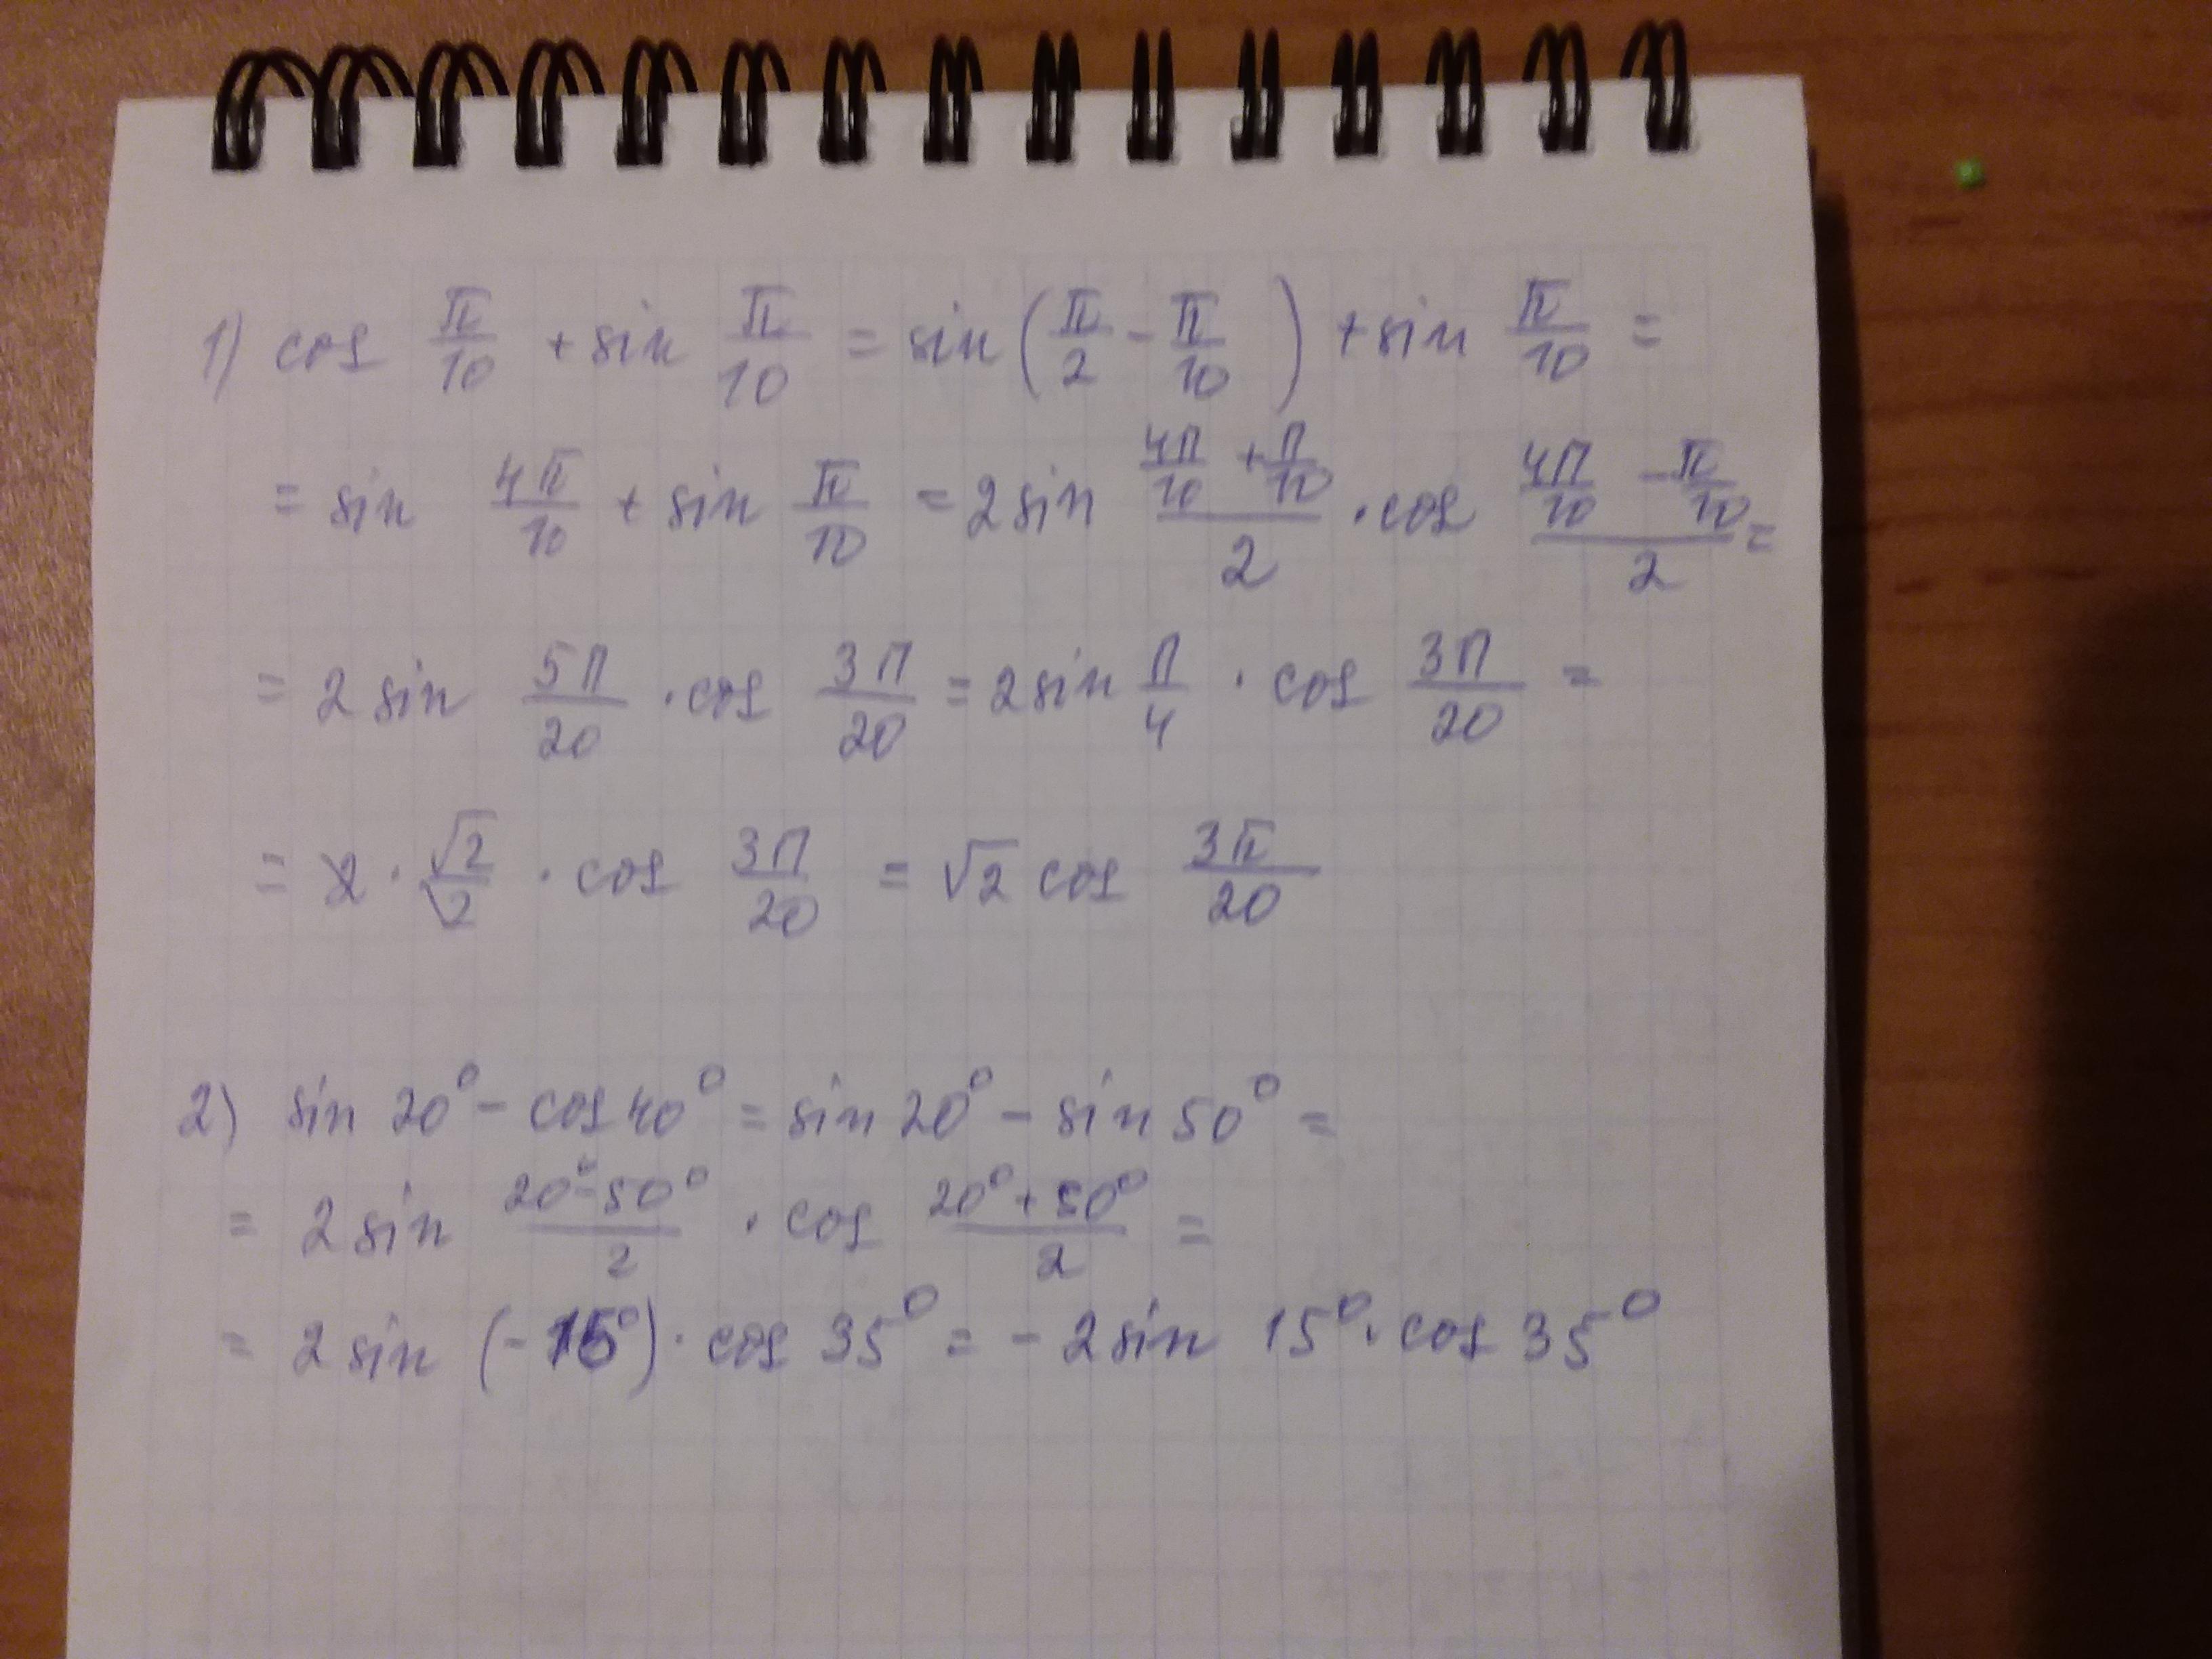 1) cos π/10 + sin π/10 = sin (π/2 - π/10) + sin π/10 =
= sin 4π/10 + sin π/10 = 2 sin (4π/10 + π/10)/2 · cos (4π/10 - π/10)/2 =
= 2 sin 5π/20 · cos 3π/20 = 2 sin π/4 · cos 3π/20 =
= 2 · √2/2 · cos 3π/20 = √2 cos 3π/20
2) sin 20° - cos 40° = sin 20° - sin 50° =
= 2 sin (20° - 50°)/2 · cos (20° + 50°)/2 =
= 2 sin (-15°) · cos 35° = - 2 sin 15° · cos 35°